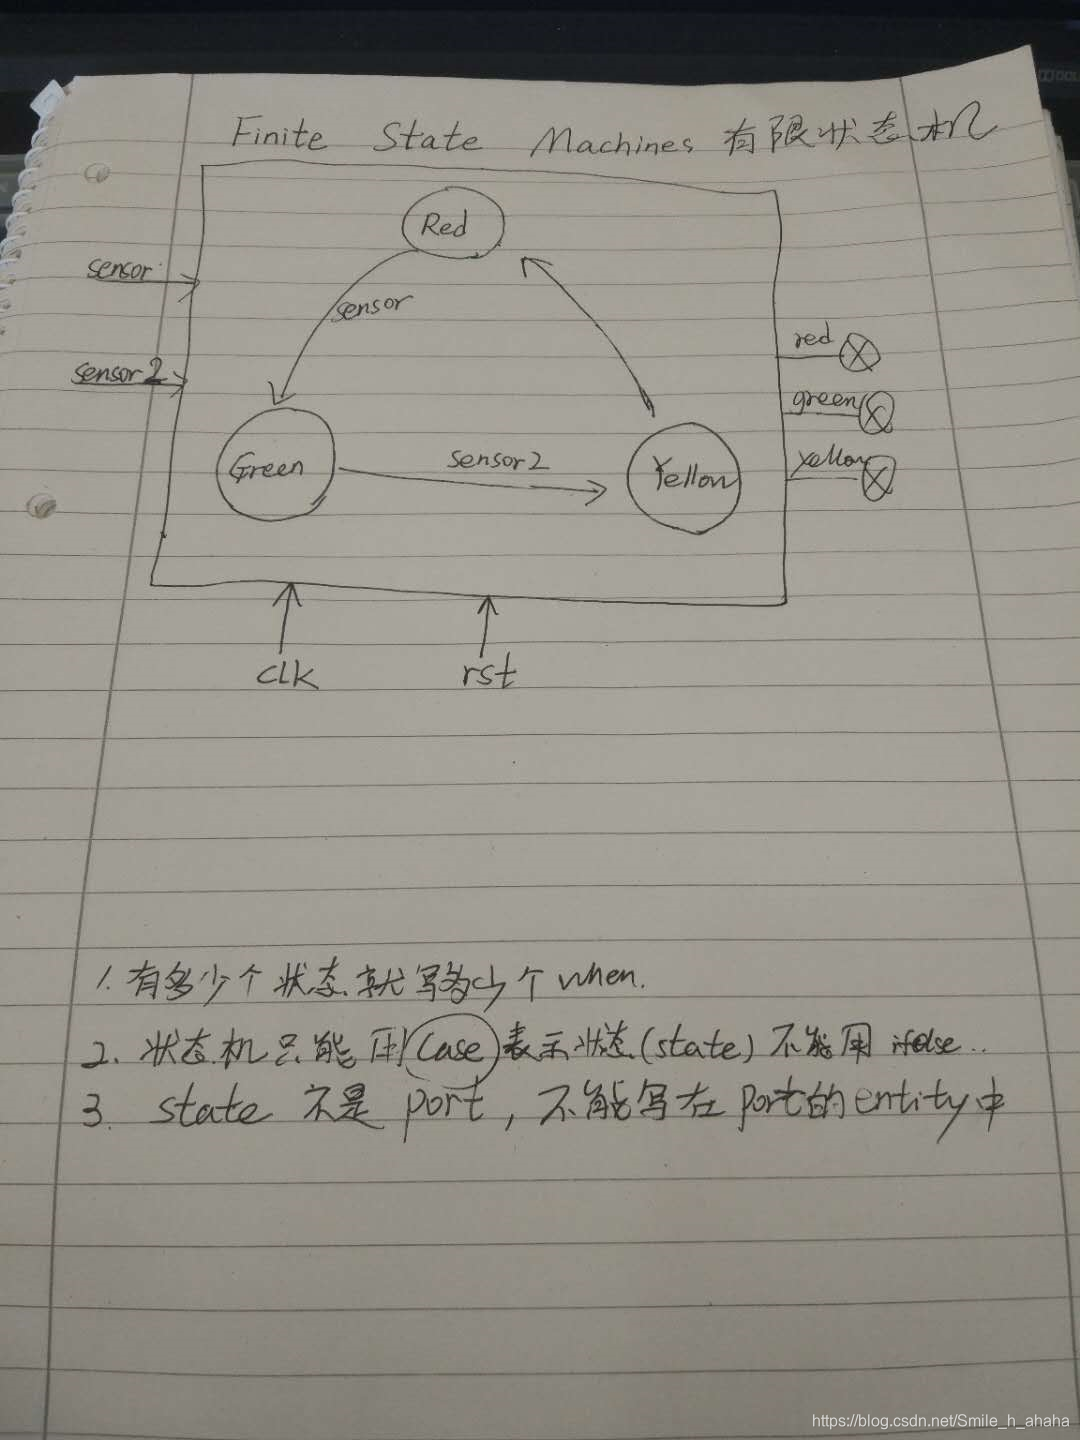 Finite State Machines 有限状态机
Red
sensor
sensor
red
sensor2
green
Green
sensor2
Yellow
yellow
clk
rst
1. 有多少个状态就写多少个 when.
2. 状态机只能用 Case 表示状态(state) 不能用 ifelse..
3. state 不是 port, 不能写在 port的entity中
https://blog.csdn.net/Smile_h_ahaha